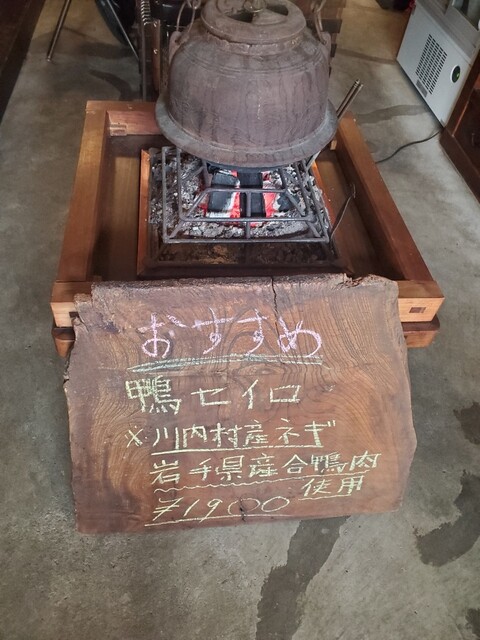 おすすめ
鴨セイロ
※川内村産ネギ
岩手県産合鴨肉
使用
¥1900